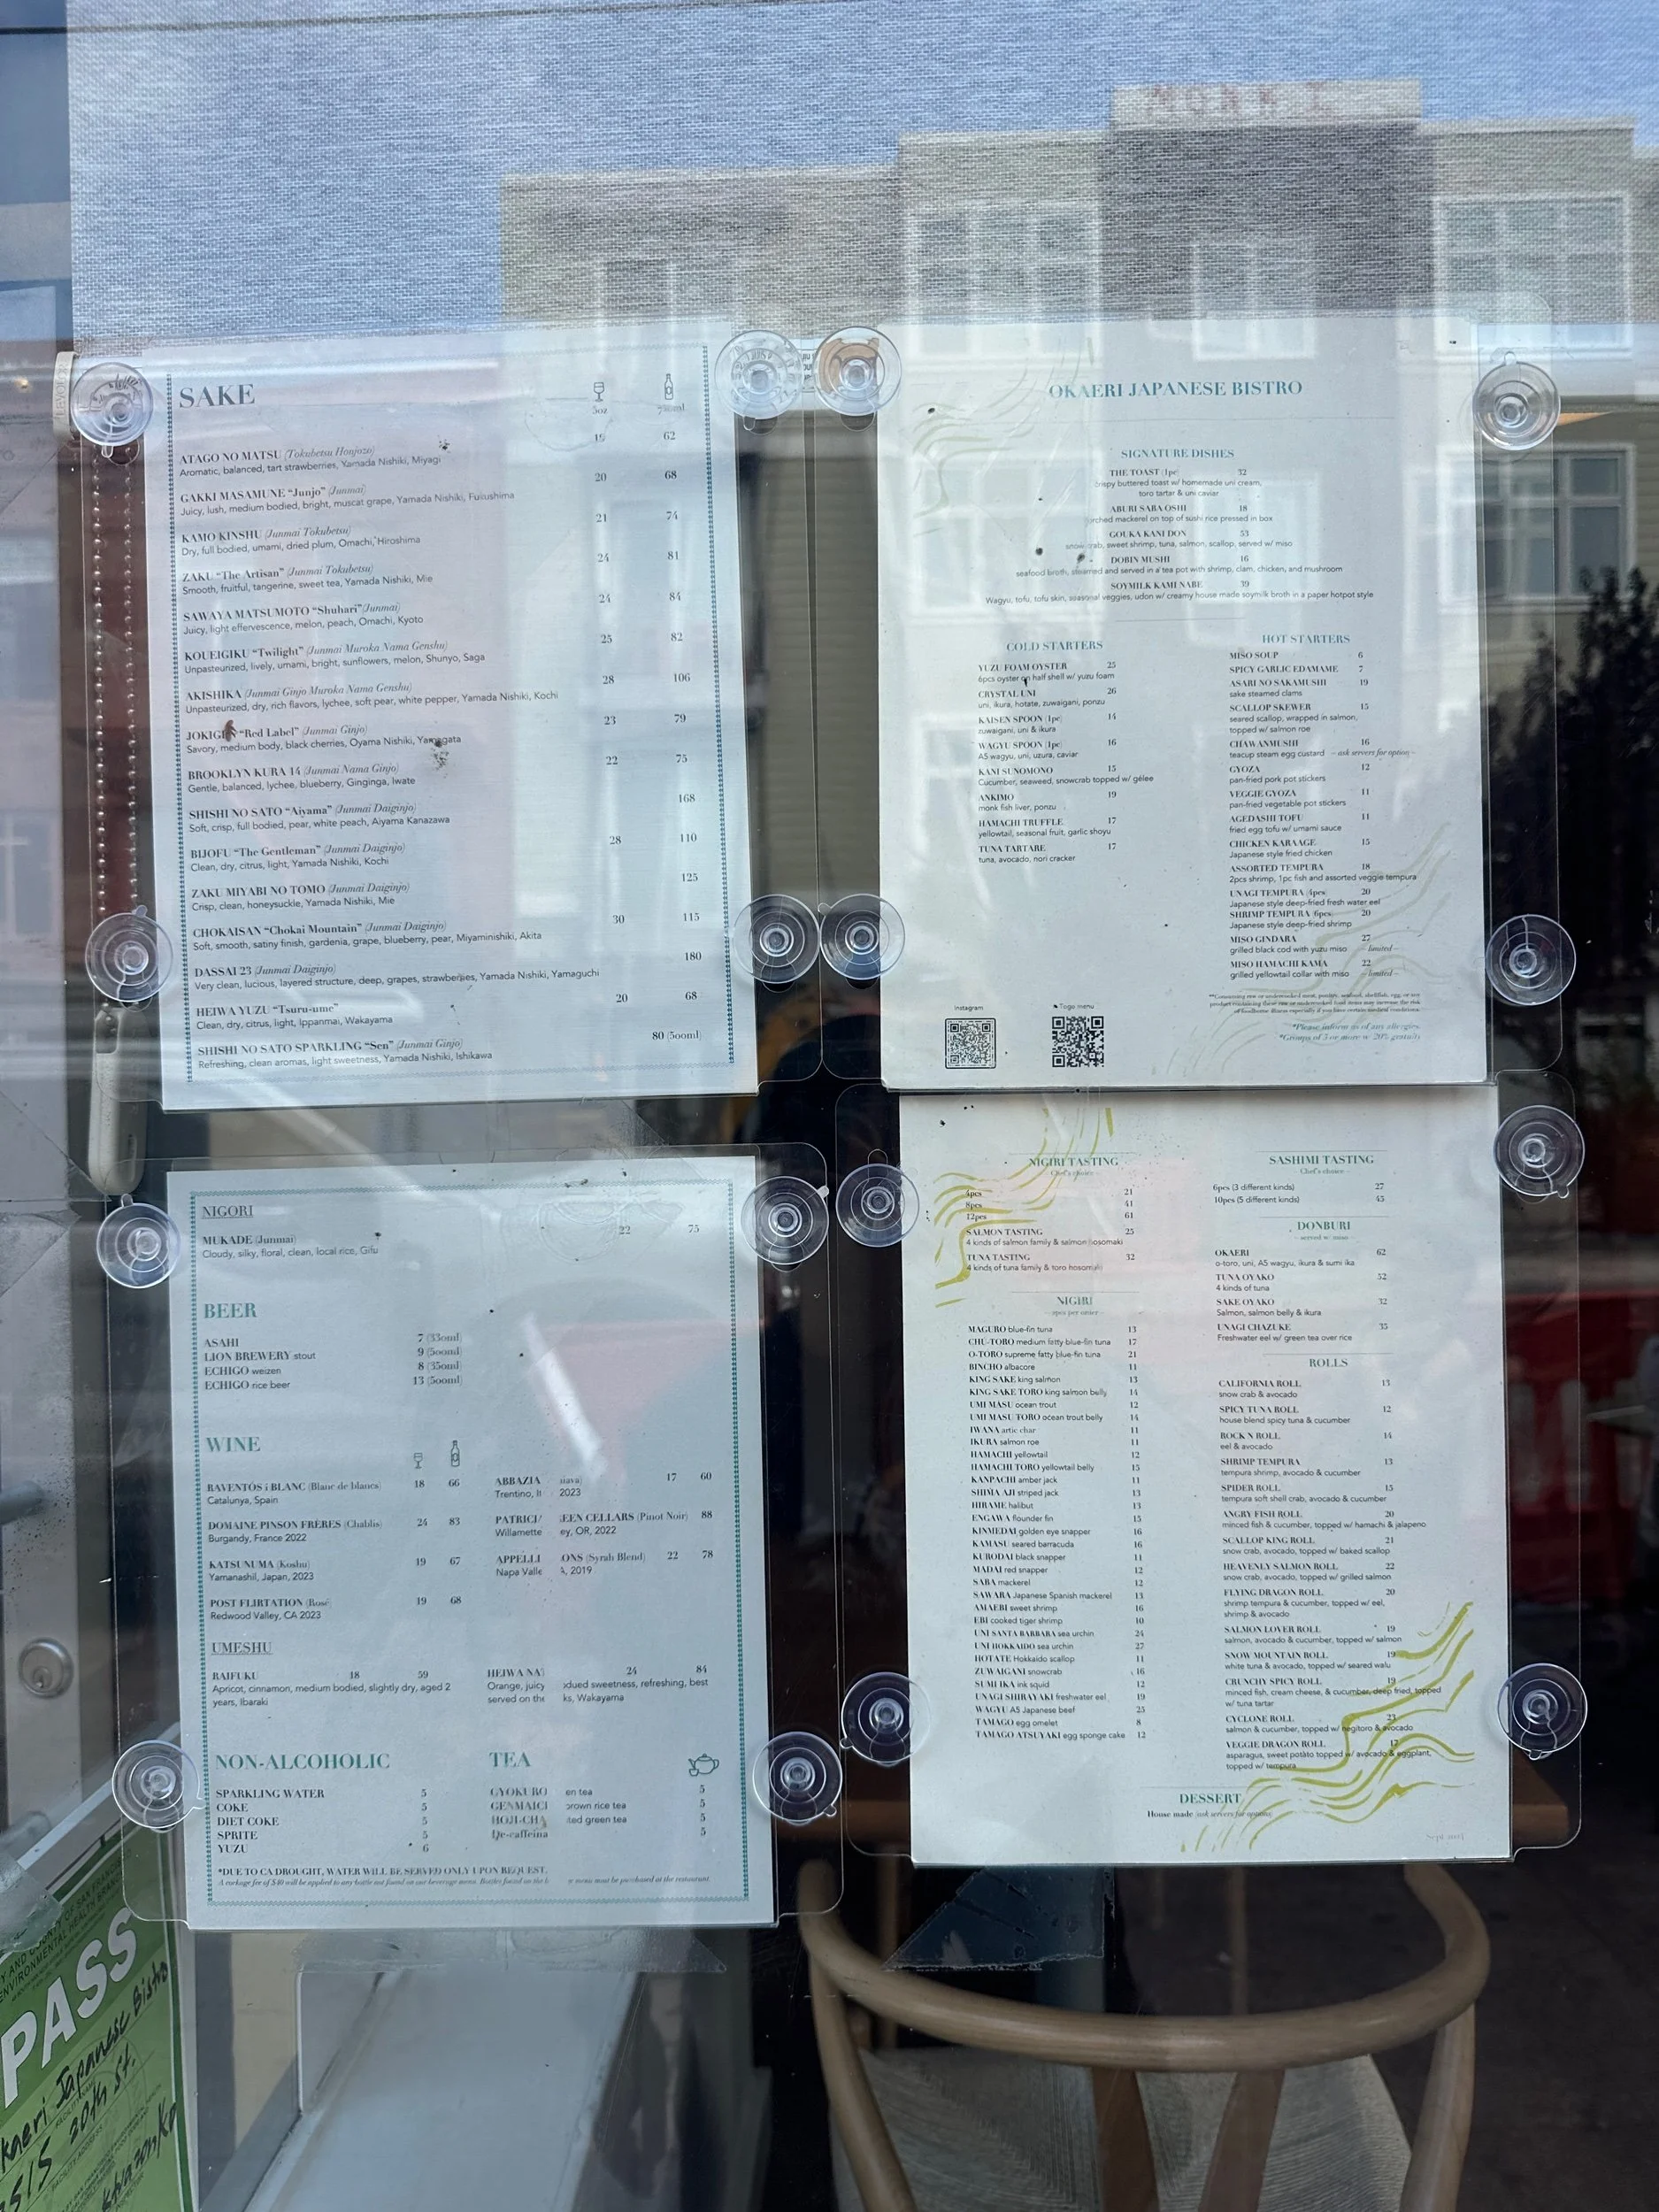 SAKE
5oz
ATAGO NO MATSU (Tokubetsu Honjozo) 19 62
Aromatic, balanced, tart strawberries, Yamada Nishiki, Miyagi
GAKKI MASAMUNE "Junjo" (Junmai) 20 68
Juicy, lush, medium bodied, bright, muscat grape, Yamada Nishiki, Fukushima
KAMO KINSHU (Junmai Tokubetsu) 21 74
Dry, full bodied, umami, dried plum, Omachi, Hiroshima
ZAKU "The Artisan" (Junmai Tokubetsu) 24 81
Smooth, fruitful, tangerine, sweet tea, Yamada Nishiki, Mie
SAWAYA MATSUMOTO "Shuhari" (Junmai) 24 84
Juicy, light effervescence, melon, peach, Omachi, Kyoto
KOUEIGIKU "Twilight" (Junmai Muroka Nama Genshu) 25 82
Unpasteurized, lively, umami, bright, sunflowers, melon, Shunyo, Saga
AKISHIKA (Junmai Ginjo Muroka Nama Genshu) 28 106
Unpasteurized, dry, rich flavors, lychee, soft pear, white pepper, Yamada Nishiki, Kochi
"Red Label" (Junmai Ginjo) 23 79
Savory, medium body, black cherries, Oyama Nishiki, Yamagata
BROOKLYN KURA 14 (Junmai Nama Ginjo) 22 75
Gentle, balanced, lychee, blueberry, Ginginga, Iwate
SHISHI NO SATO "Aiyama" (Junmai Daiginjo) 168
Soft, crisp, full bodied, pear, white peach, Aiyama Kanazawa
BIJOFU "The Gentleman" (Junmai Daiginjo) 28 110
Clean, dry, citrus, light, Yamada Nishiki, Kochi
ZAKU MIYABI NO TOMO (Junmai Daiginjo) 125
Crisp, clean, honeysuckle, Yamada Nishiki, Mie
CHOKAISAN "Chokai Mountain" (Junmai Daiginjo) 30 115
Soft, smooth, satiny finish, gardenia, grape, blueberry, pear, Miyaminishiki, Akita
DASSAI 23 (Junmai Daiginjo) 180
Very clean, lucious, layered structure, deep, grapes, strawberries, Yamada Nishiki, Yamaguchi
HEIWA YUZU "Tsuru-ume" 20 68
Clean, dry, citrus, light, Ippanmai, Wakayama
SHISHI NO SATO SPARKLING "Sen" (Junmai Ginjo) 80 (500ml)
Refreshing, clean aromas, light sweetness, Yamada Nishiki, Ishikawa
OKAERI JAPANESE BISTRO
SIGNATURE DISHES
THE TOAST (1pc) 32
crispy buttered toast w/ homemade uni cream,
toro tartar & uni caviar
ABURI SABA OSHI 18
mackerel on top of sushi rice pressed in box
GOUKA KANI DON 53
snow crab, sweet shrimp, tuna, salmon, scallop, served w/ miso
DOBIN MUSHI 16
seafood broth, steamed and served in a tea pot with shrimp, clam, chicken, and mushroom
SOYMILK KAMI NABE 39
Wagyu, tofu, tofu skin, seasonal veggies, udon w/ creamy house made soymilk broth in a paper hotpot style
COLD STARTERS
YUZU FOAM OYSTER 25
6pcs oyster on half shell w/ yuzu foam
CRYSTAL UNI 26
uni, ikura, hotate, zuwaigani, ponzu
KAISEN SPOON (1pc) 14
zuwaigani, uni & ikura
WAGYU SPOON (1pc) 16
A5 wagyu, uni, uzura, caviar
KANI SUNOMONO 15
Cucumber, seaweed, snowcrab topped w/ gelee
ANKIMO 19
monk fish liver, ponzu
HAMACHI TRUFFLE 17
yellowtail, seasonal fruit, garlic shoyu
TUNA TARTARE 17
tuna, avocado, nori cracker
HOT STARTERS
MISO SOUP 6
SPICY GARLIC EDAMAME 7
ASARI NO SAKAMUSHI 19
sake steamed clams
SCALLOP SKEWER 15
seared scallop, wrapped in salmon,
topped w/ salmon roe
CHAWANMUSHI 16
teacup steam egg custard - ask servers for option -
GYOZA 12
pan-fried pork pot stickers
VEGGIE GYOZA 11
pan-fried vegetable pot stickers
AGEDASHI TOFU 11
fried egg tofu w/ umami sauce
CHICKEN KARAAGE 15
Japanese style fried chicken
ASSORTED TEMPURA 18
2pcs shrimp, 1pc fish and assorted veggie tempura
UNAGI TEMPURA (4pcs) 20
Japanese style deep-fried fresh water eel
SHRIMP TEMPURA (6pcs) 20
Japanese style deep-fried shrimp
MISO GINDARA 27
grilled black cod with yuzu miso - limited -
MISO HAMACHI KAMA 22
grilled yellowtail collar with miso - limited -
*Please inform us of any allergies.
*Groups of 5 or more w/ 20% gratuity
instagram
Togo menu
NIGORI
MUKADE (Junmai) 22 75
Cloudy, silky, floral, clean, local rice, Gifu
BEER
ASAHI 7 (330ml)
LION BREWERY stout 9 (500ml)
ECHIGO weizen 8 (350ml)
ECHIGO rice beer 13 (500ml)
WINE
RAVENTÓS i BLANC (Blanc de blancs) 18 66
Catalunya, Spain
DOMAINE PINSON FRÈRES (Chablis) 24 83
Burgandy, France 2022
KATSUNUMA (Koshu) 19 67
Yamanashil, Japan, 2023
POST FLIRTATION (Rosé) 19 68
Redwood Valley, CA 2023
ABBAZIA 17 60
Trentino, 2023
EEN CELLARS (Pinot Noir) 88
Willamette ey, OR, 2022
APPELL ONS (Syrah Blend) 22 78
Napa Valle A, 2019
UMESHU
RAIFUKU 18 59
Apricot, cinnamon, medium bodied, slightly dry, aged 2
years, Ibaraki
HEIWA NA 24 84
Orange, juicy dued sweetness, refreshing, best
served on the ks, Wakayama
NON-ALCOHOLIC
SPARKLING WATER 5
COKE 5
DIET COKE 5
SPRITE 5
YUZU 6
TEA
GYOKURO en tea 5
GENMAIC brown rice tea 5
HOJI-CHA ted green tea 5
De-caffeina 5
*DUE TO CA DROUGHT, WATER WILL BE SERVED ONLY UPON REQUEST.
A corkage fee of $40 will be applied to any bottle not found on our beverage menu. Bottles found on the b e menu must be purchased at the restaurant.
NIGIRI TASTING
- Chef's choice -
4pcs 21
8pcs 41
12pcs 61
SALMON TASTING 25
4 kinds of salmon family & salmon hosomaki
TUNA TASTING 32
4 kinds of tuna family & toro hosomaki
NIGIRI
- 2pcs per order -
MAGURO blue-fin tuna 13
CHU-TORO medium fatty blue-fin tuna 17
O-TORO supreme fatty blue-fin tuna 21
BINCHO albacore 11
KING SAKE king salmon 13
KING SAKE TORO king salmon belly 14
UMI MASU ocean trout 12
UMI MASU TORO ocean trout belly 14
IWANA artic char 11
IKURA salmon roe 11
HAMACHI yellowtail 12
HAMACHI TORO yellowtail belly 15
KANPACHI amber jack 11
SHIMA AJI striped jack 13
HIRAME halibut 13
ENGAWA flounder fin 15
KINMEDAI golden eye snapper 16
KAMASU seared barracuda 16
KURODAI black snapper 11
MADAI red snapper 12
SABA mackerel 12
SAWARA Japanese Spanish mackerel 13
AMAEBI sweet shrimp 16
EBI cooked tiger shrimp 10
UNI SANTA BARBARA sea urchin 24
UNI HOKKAIDO sea urchin 27
HOTATE Hokkaido scallop 11
ZUWAIGANI snowcrab 16
SUMI IKA ink squid 12
UNAGI SHIRAYAKI freshwater eel 19
WAGYU A5 Japanese beef 25
TAMAGO egg omelet 8
TAMAGO ATSUYAKI egg sponge cake 12
SASHIMI TASTING
- Chef's choice -
6pcs (3 different kinds) 27
10pcs (5 different kinds) 45
DONBURI
- served w/ miso -
OKAERI 62
o-toro, uni, A5 wagyu, ikura & sumi ika
TUNA OYAKO 52
4 kinds of tuna
SAKE OYAKO 32
Salmon, salmon belly & ikura
UNAGI CHAZUKE 35
Freshwater eel w/ green tea over rice
ROLLS
CALIFORNIA ROLL 13
snow crab & avocado
SPICY TUNA ROLL 12
house blend spicy tuna & cucumber
ROCK N ROLL 14
eel & avocado
SHRIMP TEMPURA 13
tempura shrimp, avocado & cucumber
SPIDER ROLL 15
tempura soft shell crab, avocado & cucumber
ANGRY FISH ROLL 20
minced fish & cucumber, topped w/ hamachi & jalapeno
SCALLOP KING ROLL 21
snow crab, avocado, topped w/ baked scallop
HEAVENLY SALMON ROLL 22
snow crab, avocado, topped w/ grilled salmon
FLYING DRAGON ROLL 20
shrimp tempura & cucumber, topped w/ eel,
shrimp & avocado
SALMON LOVER ROLL 19
salmon, avocado & cucumber, topped w/ salmon
SNOW MOUNTAIN ROLL 19
white tuna & avocado, topped w/ seared walu
CRUNCHY SPICY ROLL 19
minced fish, cream cheese, & cucumber, deep fried, topped
w/ tuna tartar
CYCLONE ROLL 23
salmon & cucumber, topped w/ negitoro & avocado
VEGGIE DRAGON ROLL 17
asparagus, sweet potato topped w/ avocado & eggplant,
topped w/ tempura
DESSERT
House made (ask servers for options)
PASS
Japanese Bistro
20th St.